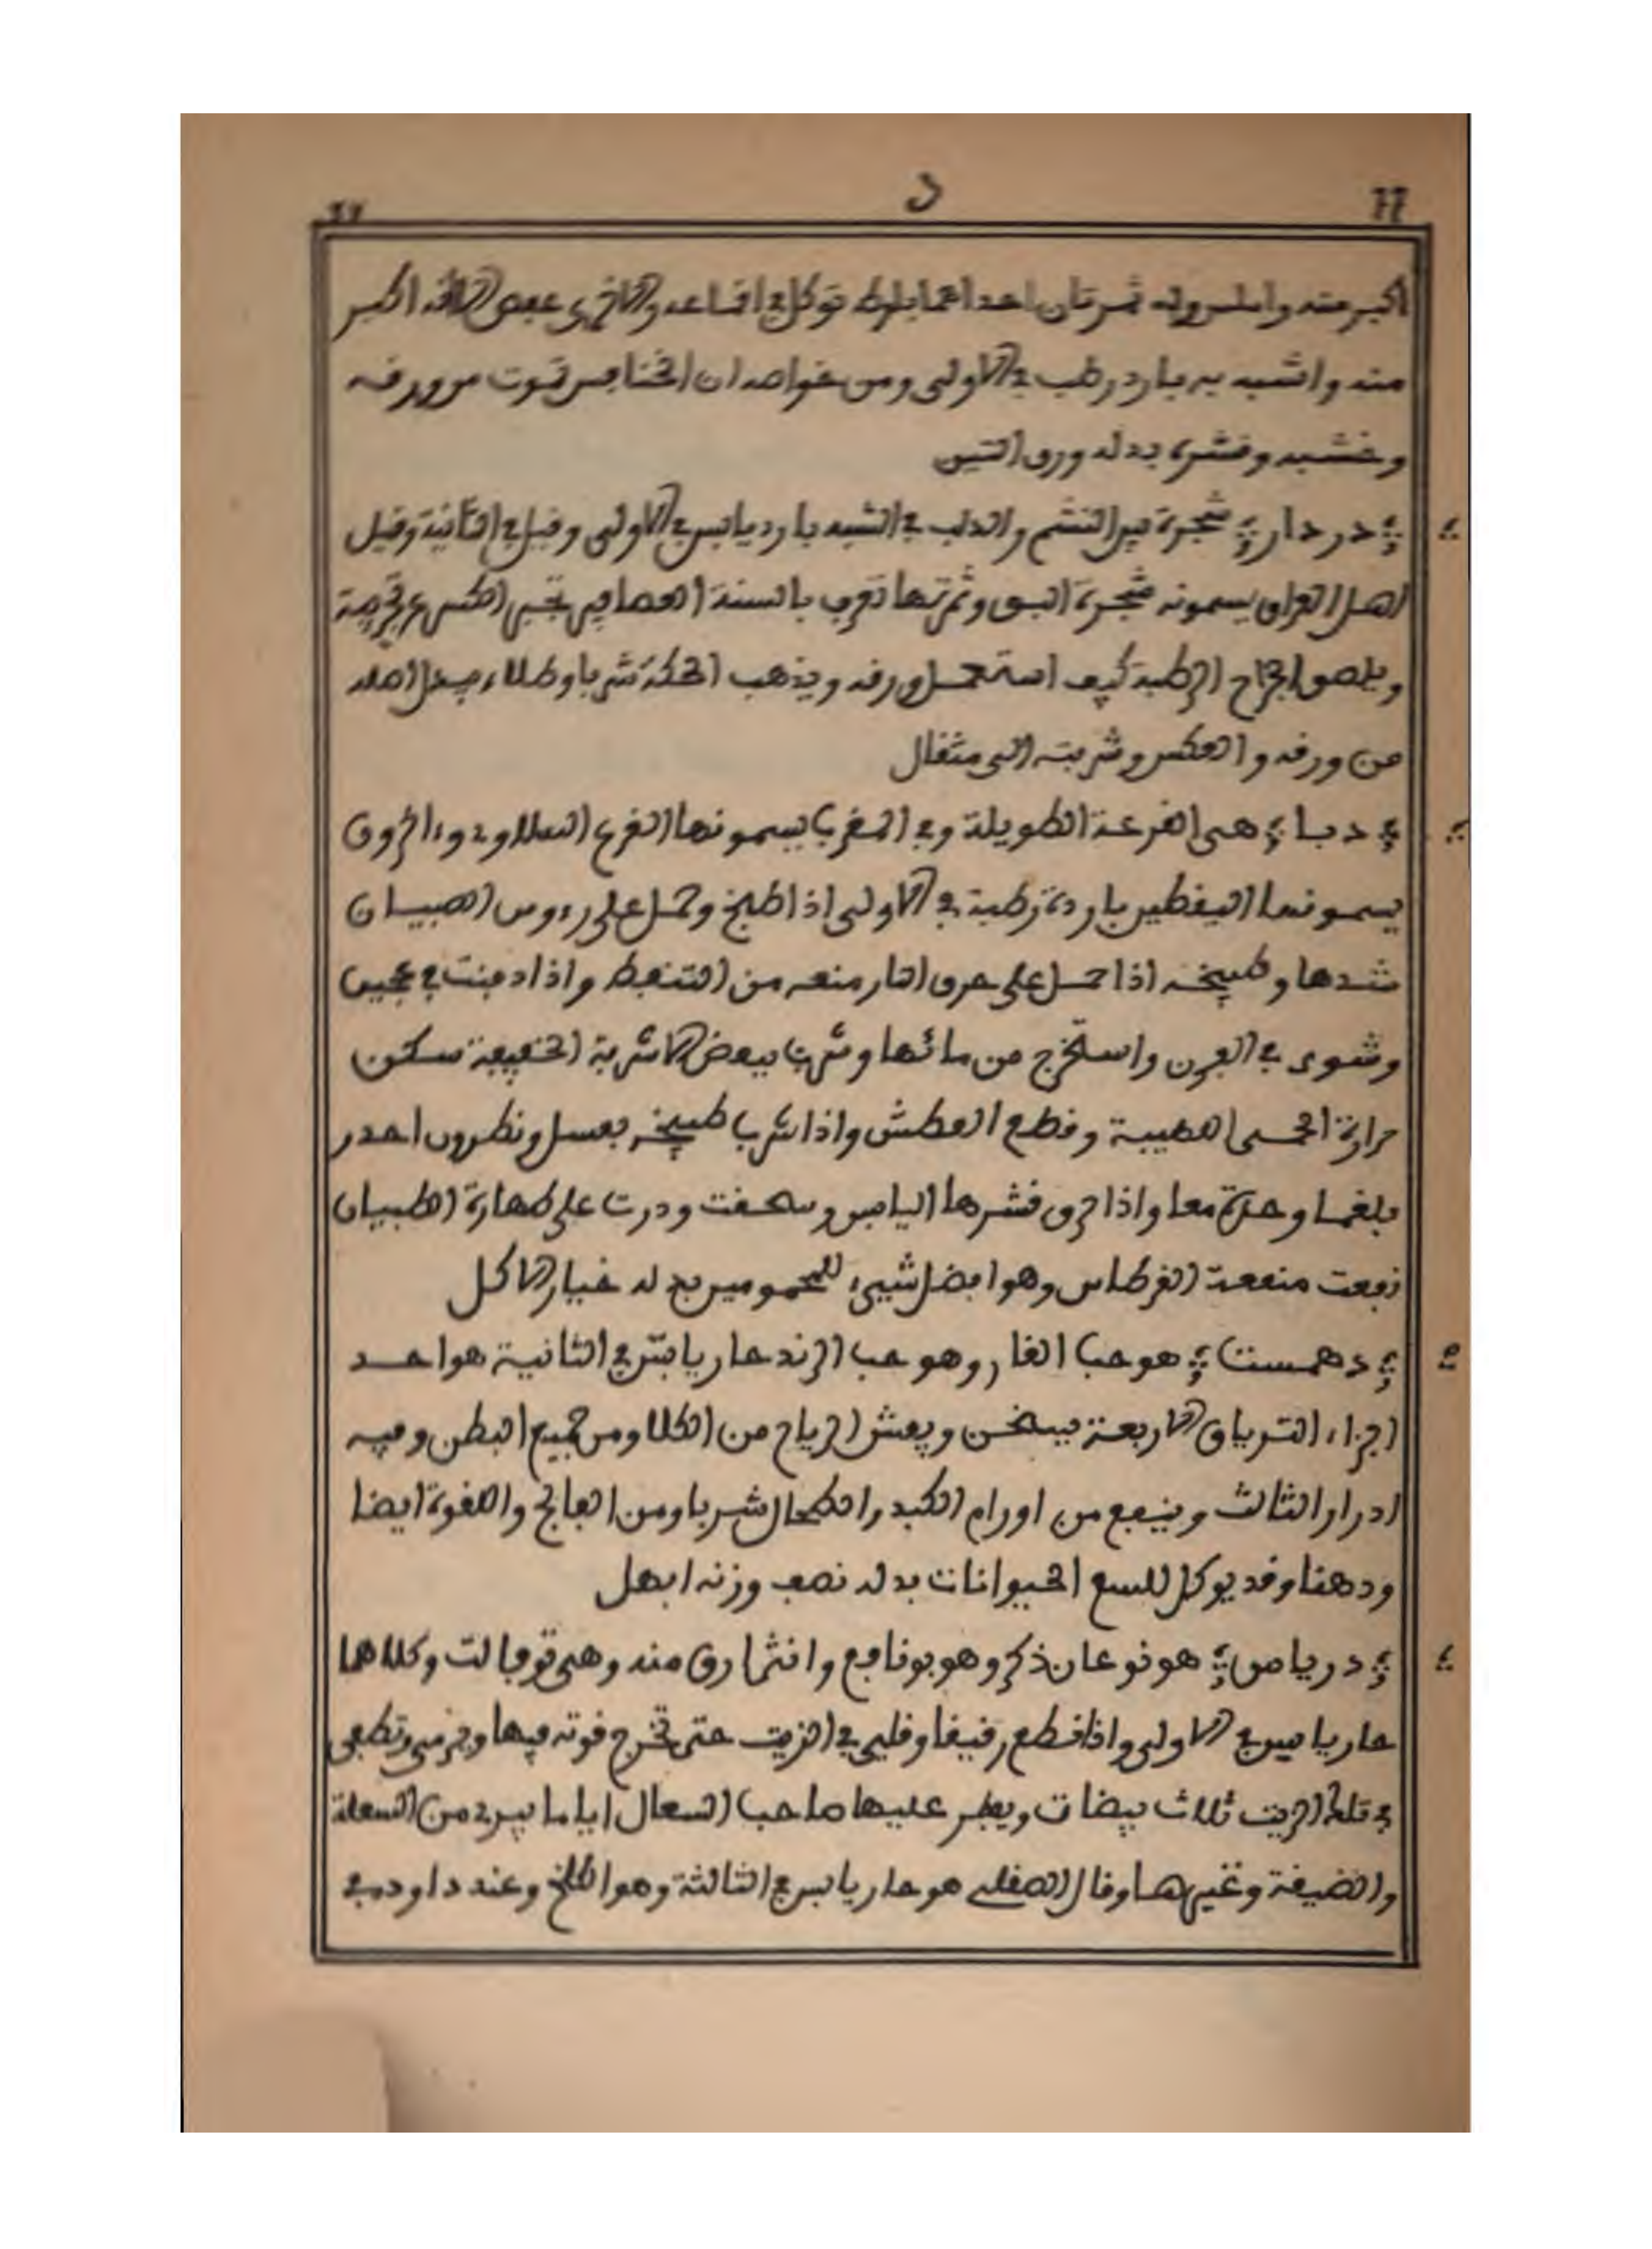 66 د 66
اكبر منه واملس وله ثمرتان احداهما بلوط توكل في الساعد والاخرى عفص الا انه اكبر
منه واشبه به بارد رطب في الاولى ومن خواصه ان الخنافس تموت من ورقه
وخشبه وقشره بدله ورق التين
دردار شجرة بين النشم والدلب في الشبه بارد يابس في الاولى وقيل في الثانية وقيل
اهل العراق يسمونه شجرة البق وثمرتها تعرف بالسنة العصافير تجبر الكسر
ويلصق الجراح الرطبة كيف استعمل ورقه ويذهب الحكة شربا وطلاء بدل اصله
من ورقه والعكس وشربته الى مثقال
دبا هي القرعة الطويلة وفي المغرب يسمونها القرع السلاوي واخرون
يسمونها اليقطين باردة رطبة في الاولى اذا طبخ وحمل على رءوس الصبيان
شدها وطبيخه اذا حمل على حرق النار منعه من التنفط واذا دفنت في عجين
وشوى في الفرن واستخرج من مائها وشرب ببعض الاشربة الخفيفة سكن
حرارة الحمى الصعبة وقطع العطش واذا شرب طبيخه بعسل ونطرون احدر
بلغما ومرة معا واذا حرق قشرها اليابس وسحقت وذرت على طهارة الصبيان
نفعت منفعة القرطاس وهو افضل شيء للمحمومين بدله خيار الاكل
دهمست هو حب الغار وهو حب الرند حار يابس في الثانية هو احد
اجزاء الترياق الاربعة يسخن ويفش الرياح من الكلا ومن جميع البطن وفيه
ادرار الثالث وينفع من اورام الكبد والطحال شربا ومن الفالج واللقوة ايضا
ودهنا وقد يوكل للسع الحيوانات بدله نصف وزنه ابهل
درياس هو نوعان ذكر وهو بونافع وانثى ارق منه وهي توفالت وكلاهما
حار يابس في الاولى واذا قطع رقيقا وقلي في الزيت حتى تخرج قوته فيها وترمى وتطفى
في تلك الزيت ثلاث بيضات ويفطر عليها صاحب السعال اياما يبرء من السعلة
والضيقة وغيرها وقال الصقلي هو حار يابس في الثالثة وهو الكلخ وعند داود في